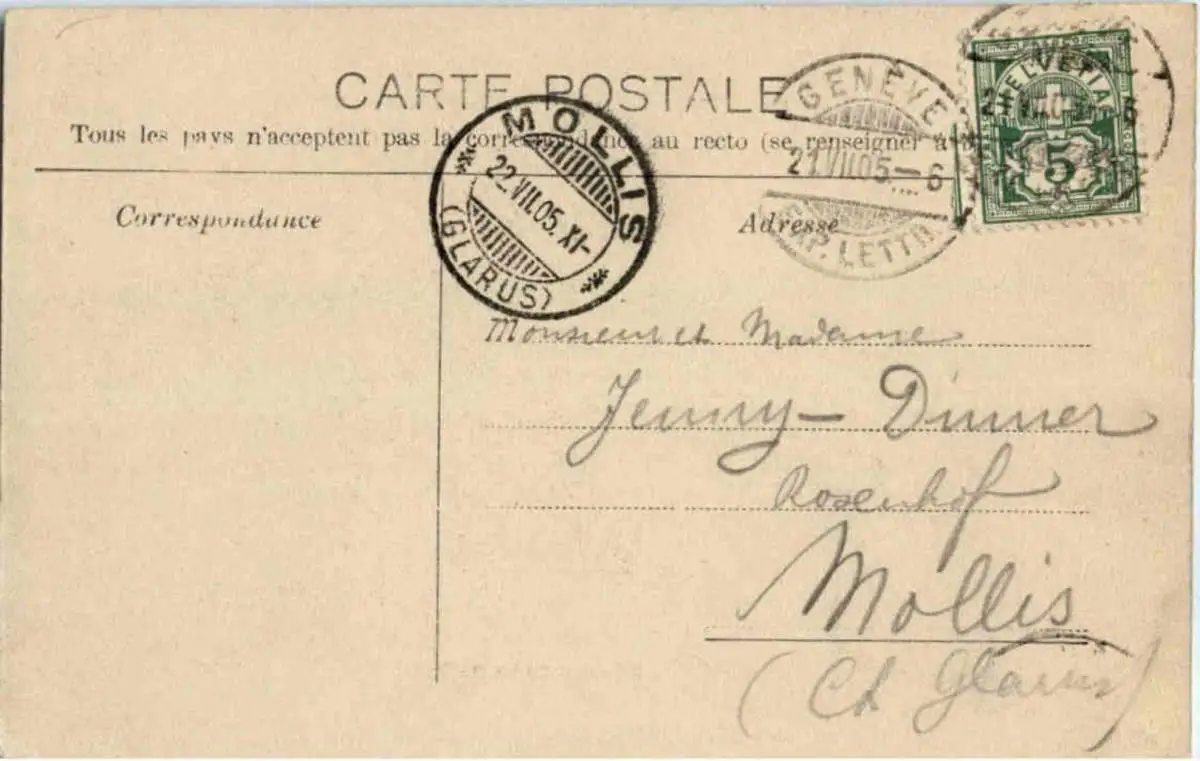 CARTE POSTALE
Tous les pays n'acceptent pas la correspondance au recto (se renseigner à la
Correspondance
Adresse
MOLLIS
22.VII.05.XI-
(GLARUS)
GENÈVE
21.VII.05.-6
EXP. LETTR.
HELVETIA
5
Monsieur et Madame
Jenny - Dinner
Rosenhof
Mollis
(Ct Glarus)